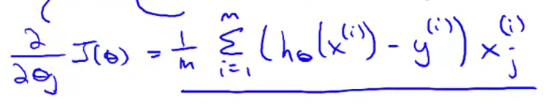 ∂/∂θj J(θ) = 1/m Σ_{i=1}^{m} (hθ(x^(i)) - y^(i)) x_j^(i)